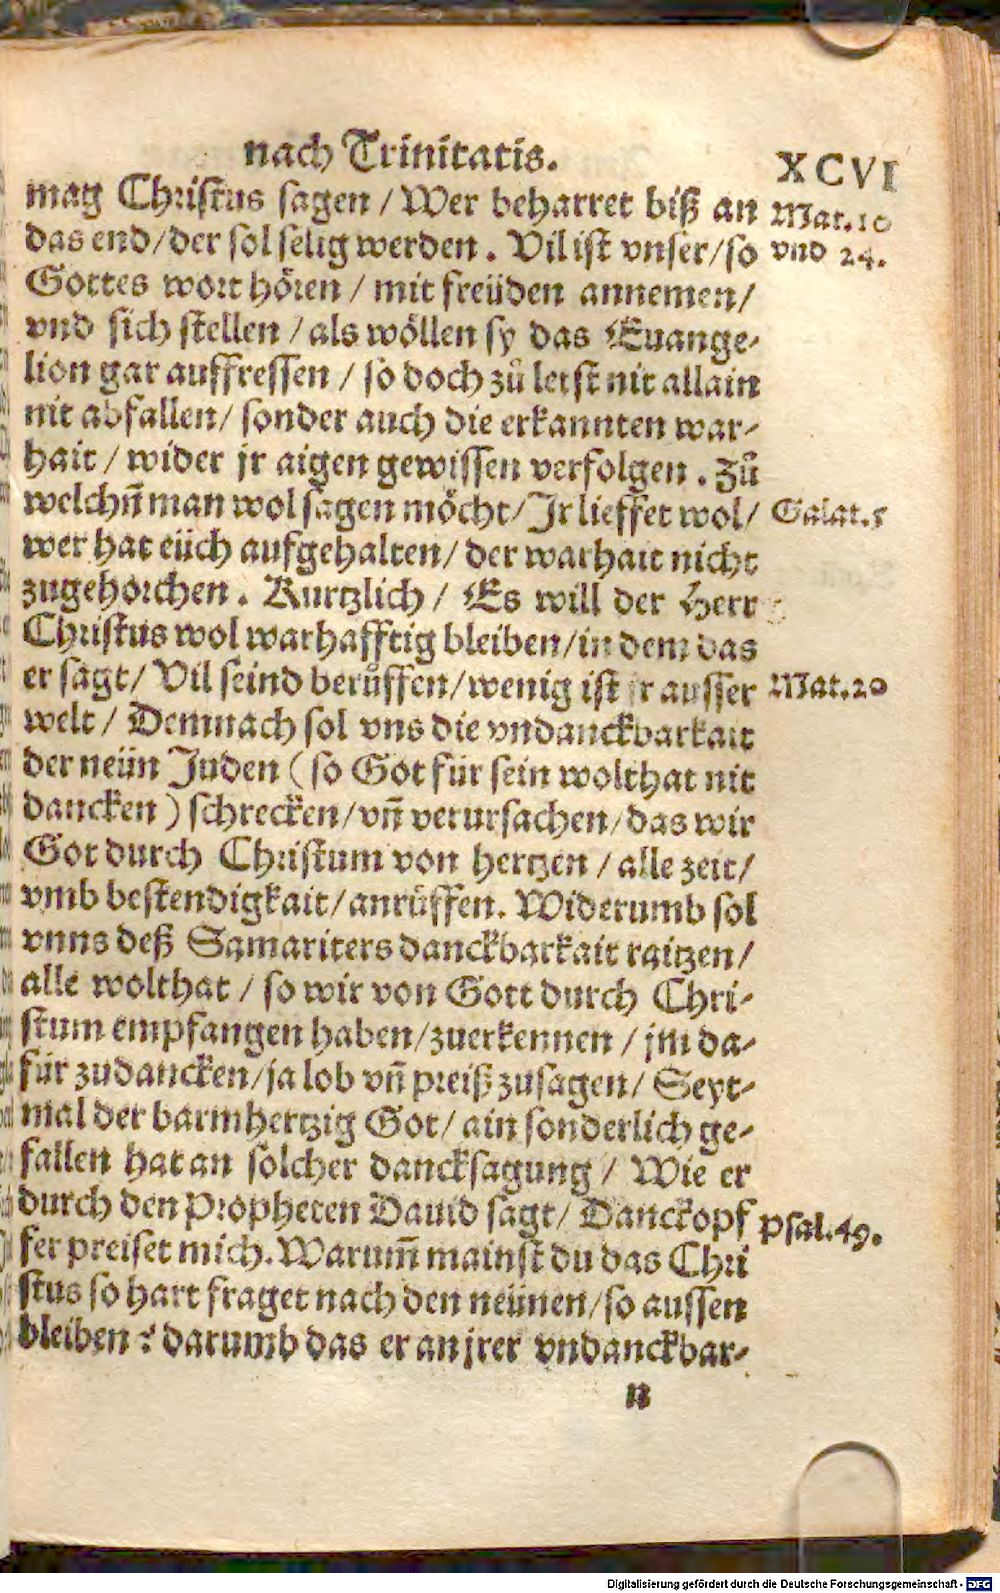 nach Trinitatis. XCVI
mag Christus sagen / Wer beharret biß an Mat.10
das end/der sol selig werden. Vil ist vnser/so vnd 24.
Gottes wort hören / mit freüden annemen/
vnd sich stellen / als wöllen sy das Euange-
lion gar auffressen / so doch zů letst nit allain
nit abfallen/ sonder auch die erkannten war-
hait / wider jr aigen gewissen verfolgen. Zů
welchñ man wol sagen möcht/Jr lieffet wol/ Galat.5
wer hat eüch aufgehalten/ der warhait nicht
zugehorchen. Kurtzlich / Es will der Herr
Christus wol warhafftig bleiben/in dem das
er sagt/ Vil seind berůffen/wenig ist jr ausser Mat.20
welt / Demnach sol vns die vndanckbarkait
der neün Juden (so Got für sein wolthat nit
dancken) schrecken/vñ verursachen/das wir
Got durch Christum von hertzen / alle zeit/
vmb bestendigkait/anrůffen. Widerumb sol
vnns deß Samariters danckbarkait raitzen/
alle wolthat / so wir von Gott durch Chri-
stum empfangen haben/zuerkennen / jm da-
für zudancken/ja lob vñ preiß zusagen/ Seyt-
mal der barmhertzig Got/ ain sonderlich ge-
fallen hat an sölcher dancksagung / Wie er
durch den Propheten Dauid sagt/ Danckopf Psal.49.
fer preiset mich. Warum̃ mainst du das Chri
stus so hart fraget nach den neünen/so aussen
bleiben? darumb das er an jrer vndanckbar-
N
Digitalisierung gefördert durch die Deutsche Forschungsgemeinschaft - DFG